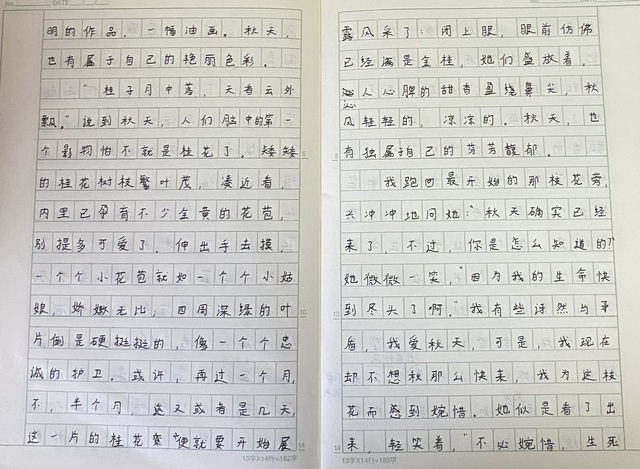 No.
DATE / /
明的作品，一幅油画。秋天，
也有属于自己的艳丽色彩。
“桂子月中落，天香云外
飘。”说到秋天，人们脑中的第一
个影物怕不就是桂花了。矮矮
的桂花树枝繁叶茂，凑近看
内里已孕有不少金黄的花苞，
别提多可爱了。伸出手去摸，
一个个小花苞就如一个个小姑
娘，娇嫩无比；四周深绿的叶
片倒是硬挺挺的，像一个个忠
诚的护卫。或许，再过一个月，
不，半个月，或又或者是几天，
这一片的桂花要便就要开始展
13字X14行=182字
DATE / /
露风采了：闭上眼，眼前仿佛
已经满是金桂，她们盛放着，
沁人心脾的甜香盈绕鼻尖。秋
风轻轻的，凉凉的。秋天，也
有独属于自己的芬芳馥郁。
我跑回最开始的那枝花旁，
兴冲冲地问她：“秋天确实已经
来了，不过，你是怎么知道的？”
她微微一笑，“因为我的生命快
到尽头了啊。”我有些讶然与矛
盾，我爱秋天，可是，我现在
却不想秋那么快来，我为这枝
花而感到婉惜。她似是看了出
来，轻笑着，“不必婉惜，生死
13字X14行=182字